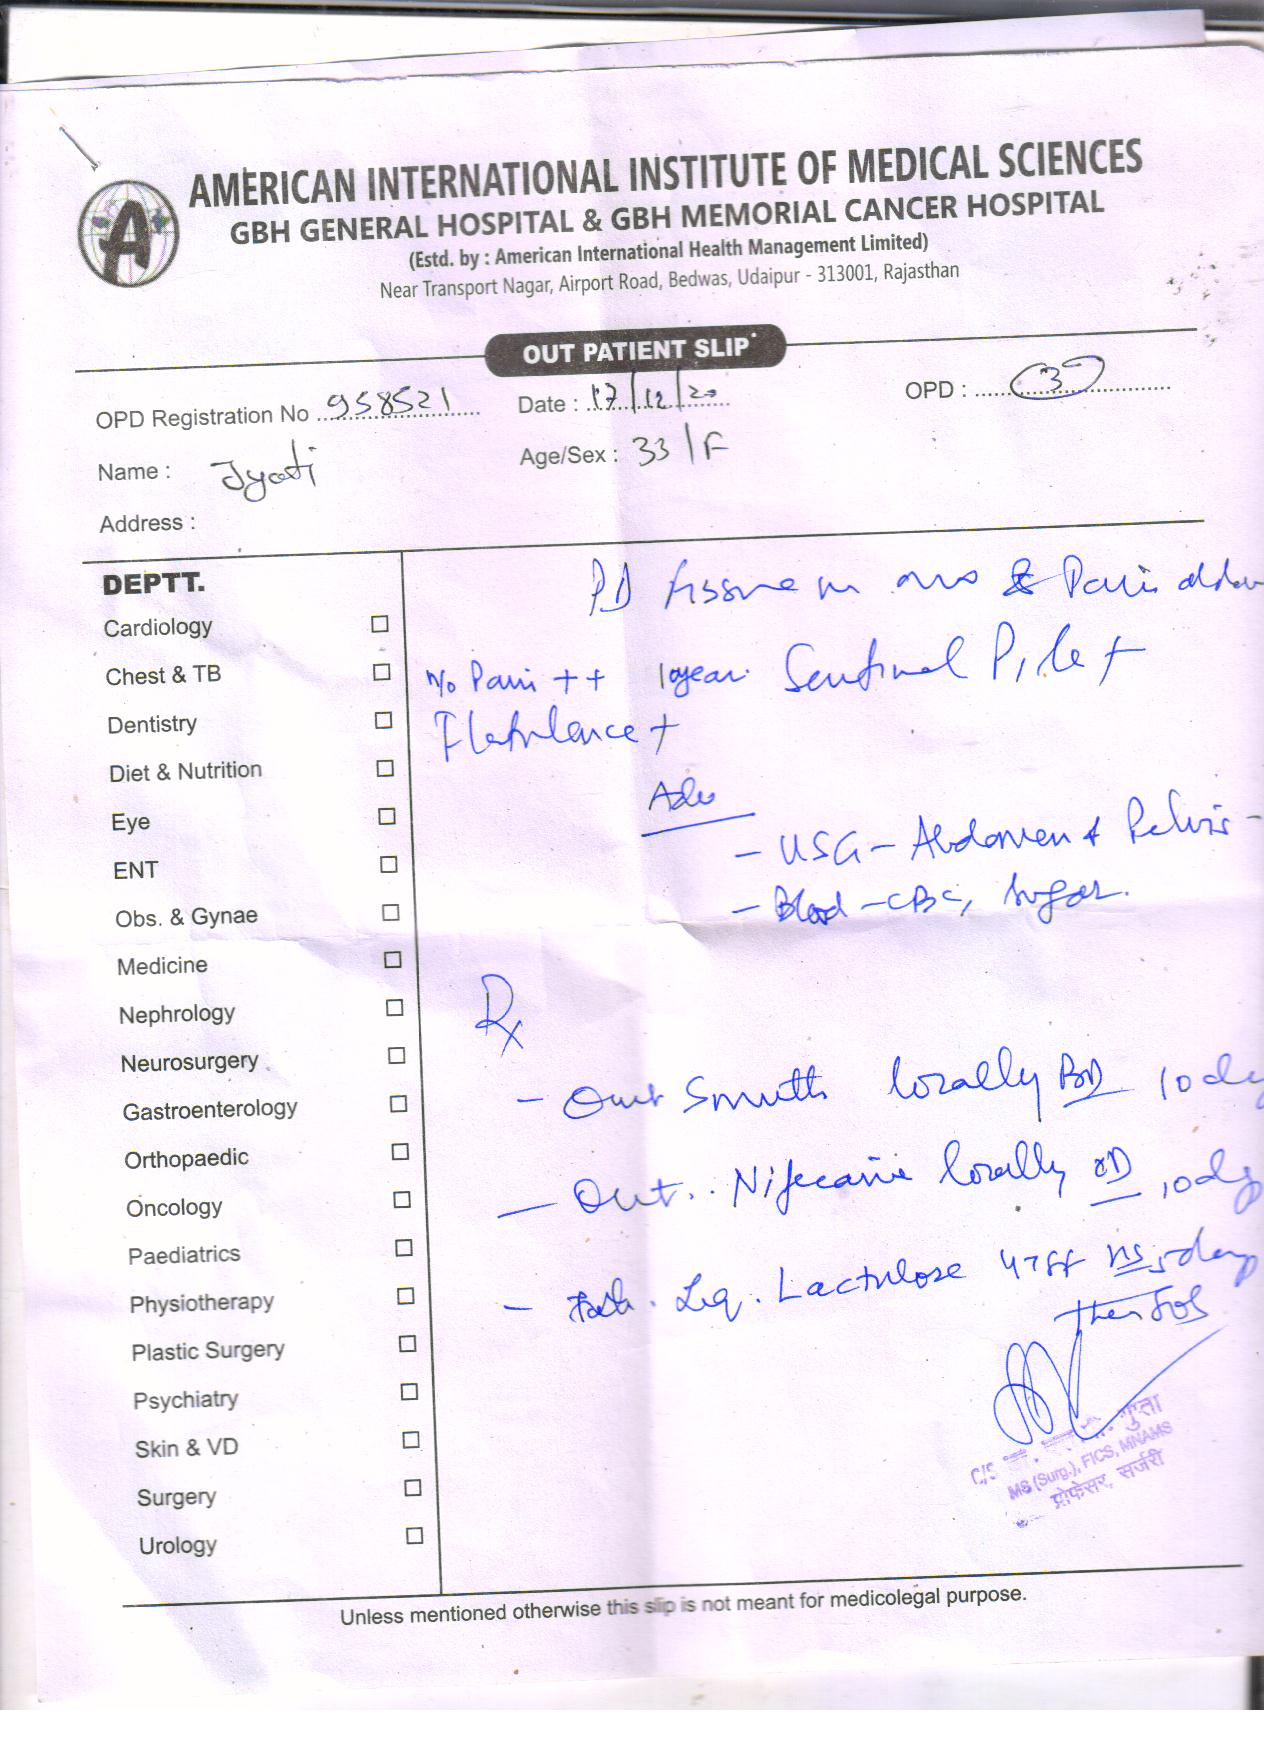 AMERICAN INTERNATIONAL INSTITUTE OF MEDICAL SCIENCES
GBH GENERAL HOSPITAL & GBH MEMORIAL CANCER HOSPITAL
(Estd. by : American International Health Management Limited)
Near Transport Nagar, Airport Road, Bedwas, Udaipur - 313001, Rajasthan
OUT PATIENT SLIP
OPD Registration No 958521 Date : 17/12/20 OPD : 39
Name : Jyoti Age/Sex : 33/F
Address :
DEPTT.
Cardiology
Chest & TB
Dentistry
Diet & Nutrition
Eye
ENT
Obs. & Gynae
Medicine
Nephrology
Neurosurgery
Gastroenterology
Orthopaedic
Oncology
Paediatrics
Physiotherapy
Plastic Surgery
Psychiatry
Skin & VD
Surgery
Urology
Fissure in ano & Pain
Pain ++ 1 year Sentinel Pile +
Flatulence +
Adv
- USG - Abdomen & Pelvis -
- Blood - CBC, Sugar.
Rx
- Oint Smuth locally BD 10
- Oint. locally 10
- Liq. Lactulose HS 5 days
then SOS
गुप्ता
MS (Surg.), FICS, MNAMS
प्रोफेसर, सर्जरी
Unless mentioned otherwise this slip is not meant for medicolegal purpose.